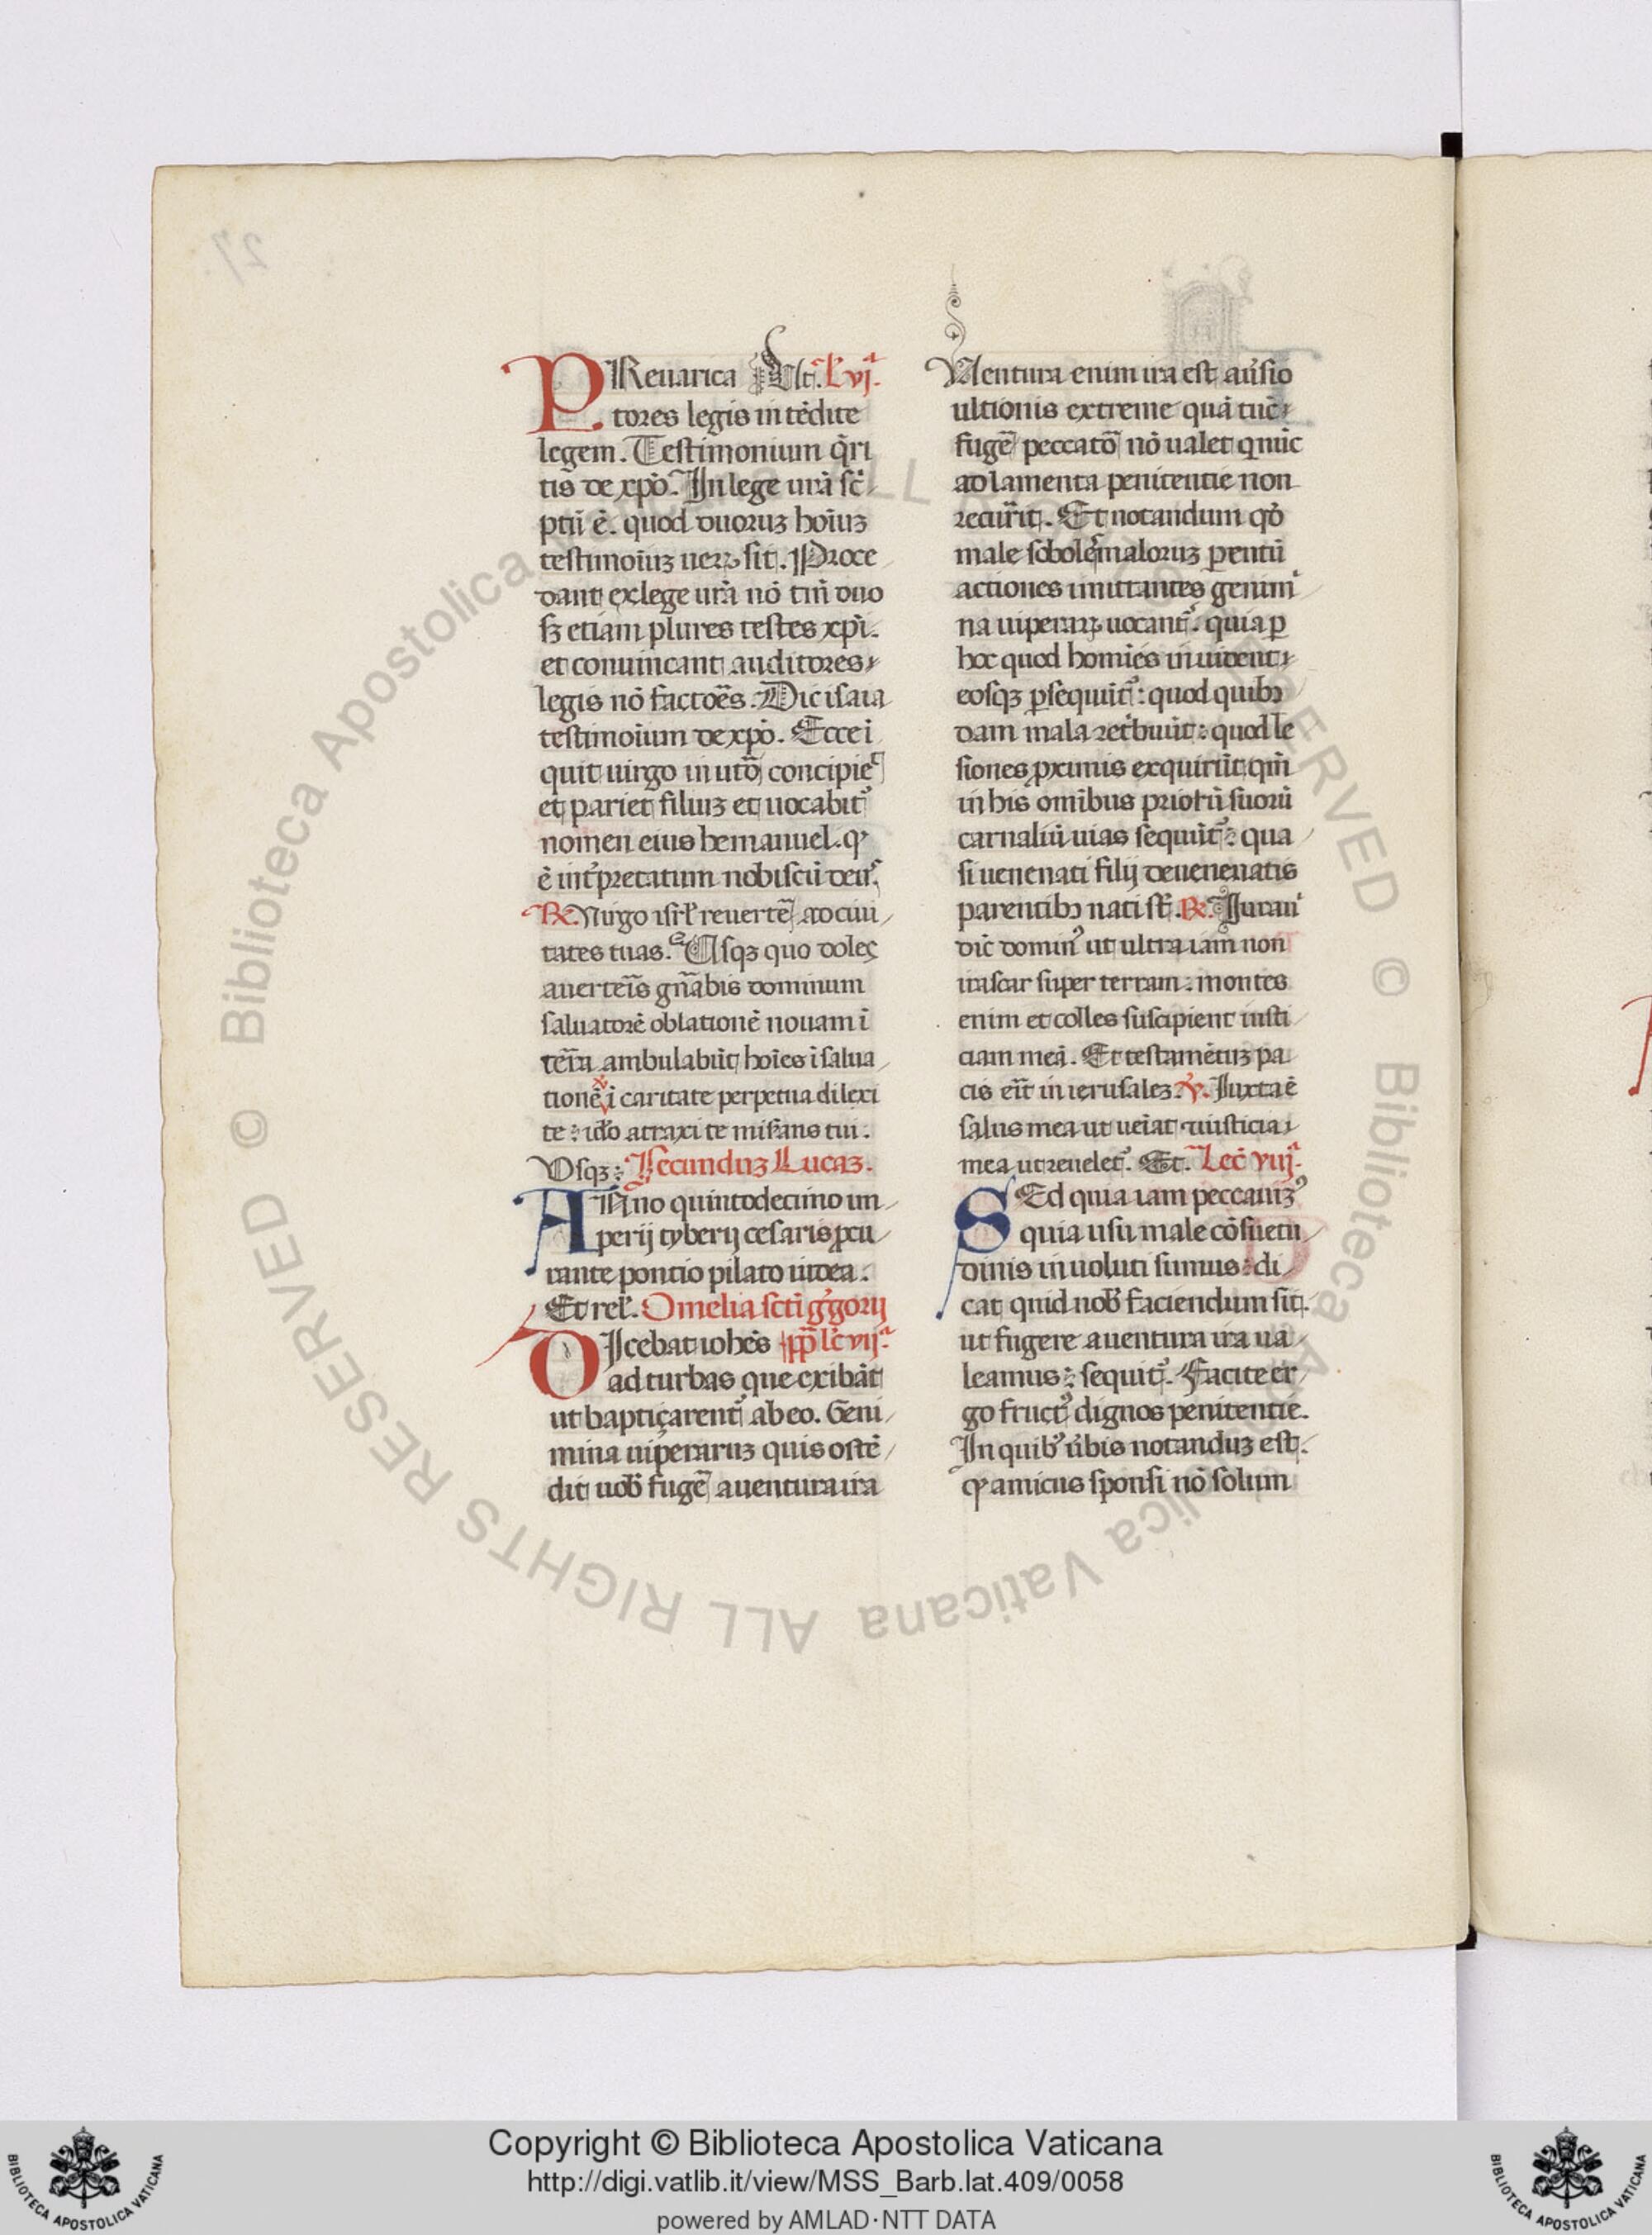 PReuarica Et. L. vjª.
tores legis intēdite
legem. Testimonium q̄ri
tis de xpō. In lege urā sc̄
ptū ē. quod duoruꝫ hoīuꝫ
testimoīuꝫ ueꝝ sit. Proce
dant ex lege urā nō tm̄ duo
sꝫ etiam plures testes xp̄i.
et conuincant auditores
legis nō factoēs. Dic isaia
testimoīum de xpō. Ecce i
quit uirgo in utō concipiet
et pariet filiuꝫ et uocabit᾿
nomen eius hemanuel. q
ē int̄pretatum nobiscū deus
℟. Uirgo isrl̄ reuertē ad ciui
tates tuas. Usqꝫ quo doleç
auerteīs gn̄abis dominum
saluatorē oblationē nouam ī
tēra ambulabūt hoīes ī salua
tionē ℣ ī caritate perpetua dilexi
te: idō atraxi te mis̄ans tui.
Usqꝫ: Secunduꝫ Lucaꝫ.
ANno quintodecimo im
perij tyberij cesaris ꝓcu
rante pontio pilato iudea.
Et rel᾿. Omelia sc̄ti g᾿gorij
DIcebat iohēs pp̄ lc̄ vijª.
ad turbas que exibāt
ut baptiçarent᾿ ab eo. Geni
mina uiperaruꝫ quis ostē
dit uob᾿ fugē a uentura ira
Uentura enim ira est aūsio
ultionis extreme quā tūc
fugē peccatō nō ualet q nūc
ad lamenta penitentie non
recūrit. Et notandum qđ
male sobolē maloruꝫ ꝑentū
actiones imittantes genim
na uiperaꝝ uocant᾿. quia ꝑ
hoc quod homiēs inuident
eosqꝫ ꝑsequūt᾿: quod quibꝰ
dam mala ret᾿buūt: quod le
siones ꝓximis exquirūt qm̄
in his omībus priorū suorū
carnaliū uias sequūt᾿: qua
si uenenati filij de uenenatis
parentibꝰ nati st̄. ℟. Iuraui
dic̄ dominꝰ ut ultra iam non
irascar super terram: montes
enim et colles suscipient iusti
ciam meā. Et testamētuꝫ pa
cis erit̄ in ierusaleꝫ. ℣. Iuxta ē
salus mea ut ueīat iusticia
mea ut reuelet᾿. Et. Lec̄ viijª.
SEd quia iam peccauiꝫꝰ
quia usu male cōsuetu
dinis inuoluti sumus: di
cat quid nob᾿ faciendum sit.
ut fugere a uentura ira ua
leamus: sequit᾿. Facite er
go fructꝰ dignos penitentie.
In quibꝰ ūbis notanduꝫ est.
ꝙ amicus sponsi nō solum
Copyright © Biblioteca Apostolica Vaticana
http://digi.vatlib.it/view/MSS_Barb.lat.409/0058
powered by AMLAD·NTT DATA
© Biblioteca Apostolica Vaticana ALL RIGHTS RESERVED © Biblioteca Apostolica Vaticana ALL RIGHTS RESERVED
BIBLIOTECA APOSTOLICA VATICANA
BIBLIOTECA APOSTOLICA VATICANA